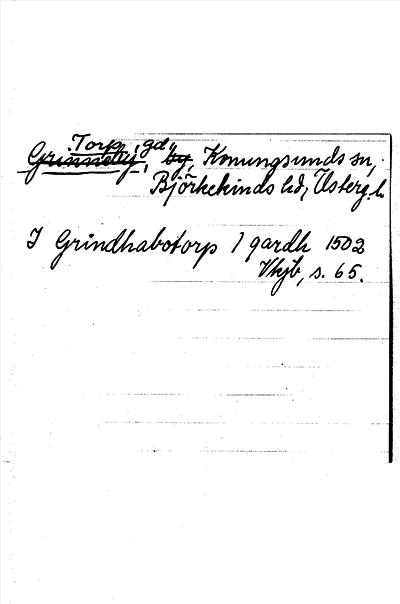 Torp, gd,
Grinneby, by, Konungsunds sn,
Björkekinds hd, Österg. l.
I Grindhabotorp 1 gardh 1502
Vhjb, s. 65.